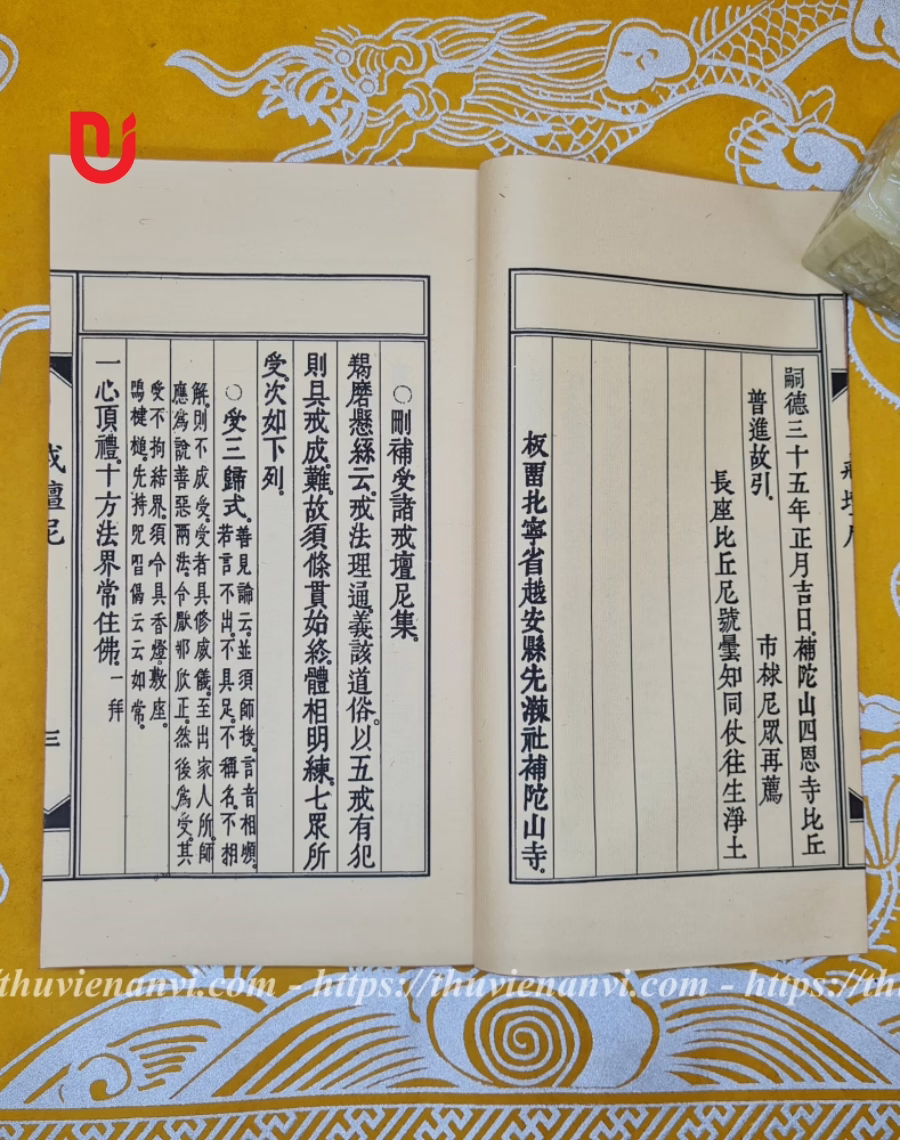 嗣德三十五年正月吉日.補陀山四恩寺比丘
普進故引.
市梂尼眾再薦
長座比丘尼號曇知同仗往生淨土
板畱北寧省越安縣先𤀞社補陀山寺.
○刪補受諸戒壇尼集.
羯磨懸絲云.戒法理通.義該道俗.以五戒有犯
則具戒成.難.故須條貫始終.體相明練.七眾所
受.次如下列.
○受三歸式.
善見論云.並須師授.言音相順.
若言不出.不具足.不稱名.不相
解.則不成受.受者具修威儀.至出家人所.師
應爲說善惡兩法.令厭邪欣正.然後爲受.其
受不拘結界.須令具香燈.敷座.
鳴楗槌.先持咒唱偈云云如常.
一心頂禮.十方法界常住佛.一拜
戒壇尼
三
https://thuvienanvi.com - https://thuvienanvi.com - https://thu